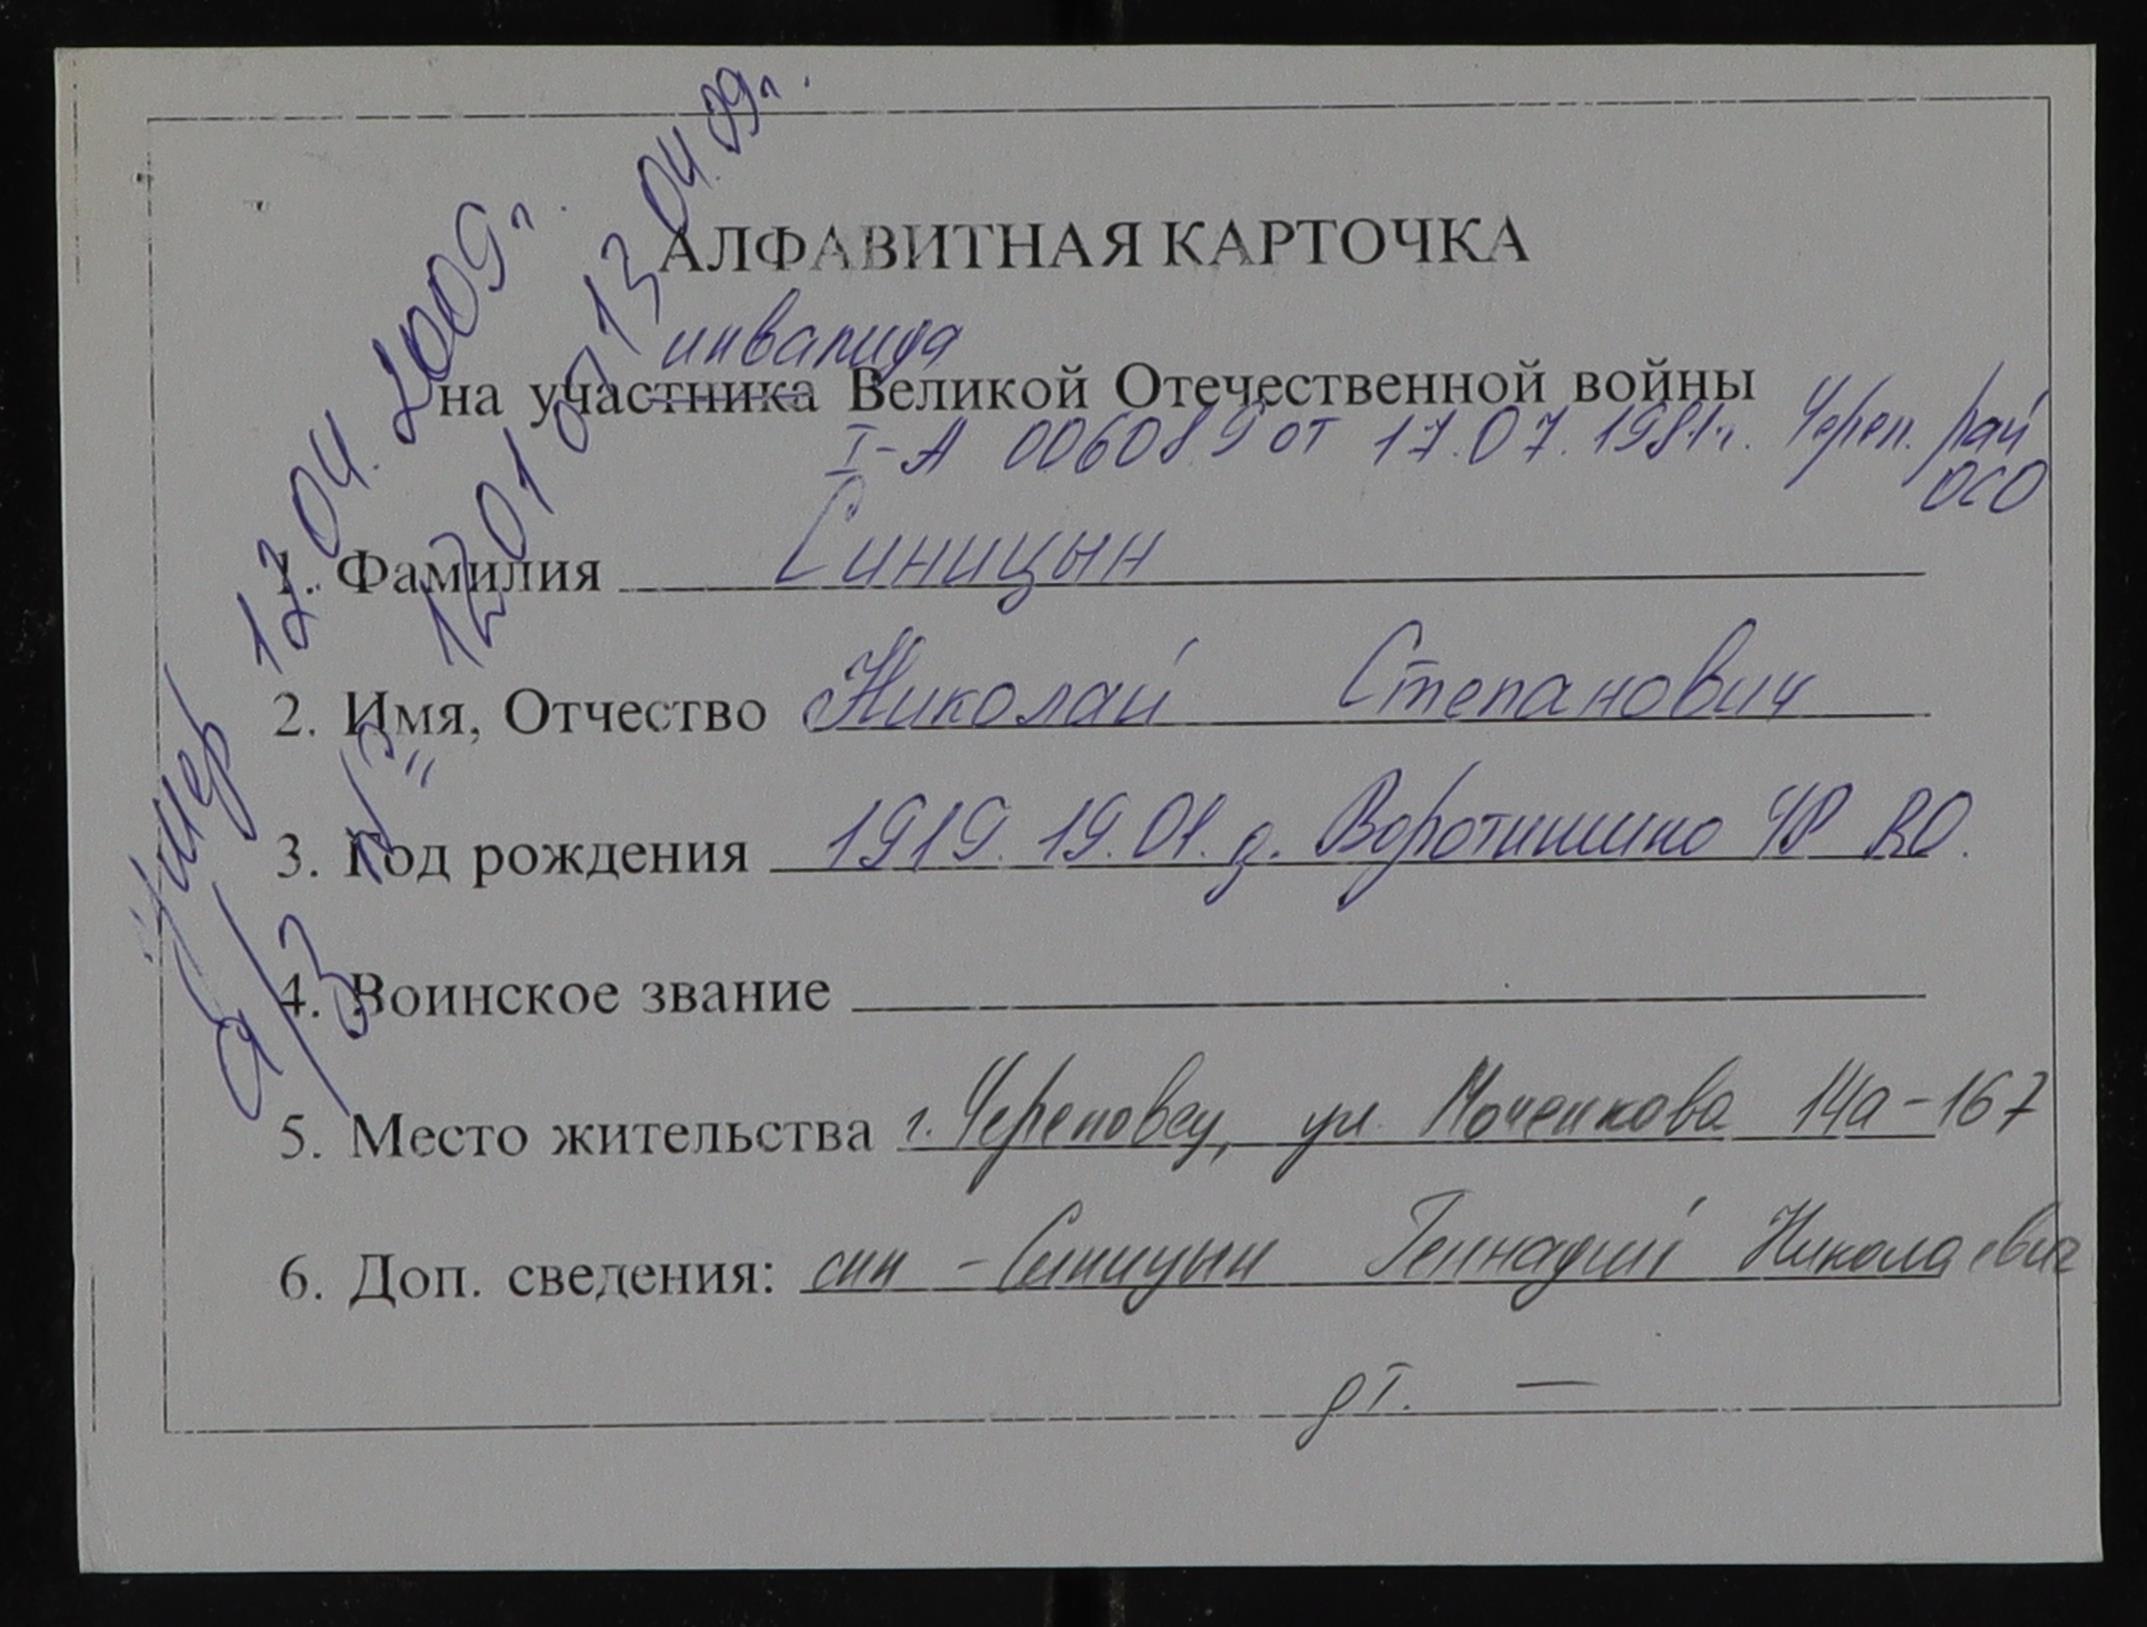 АЛФАВИТНАЯ КАРТОЧКА
инвалида
на участника Великой Отечественной войны
I-А 006089 от 17.07.1981г. Череп. рай
ОСО
1. Фамилия Синицын
2. Имя, Отчество Николай Степанович
3. Год рождения 1919. 19.01. д. Воротишино ЧР ВО.
4. Воинское звание
5. Место жительства г. Череповец, ул. Моченкова 14а-167
6. Доп. сведения: сын - Синицын Геннадий Николаевич
дт. —
умер 12.04.2009г.
а/з № 1201 от 13.04.09г.